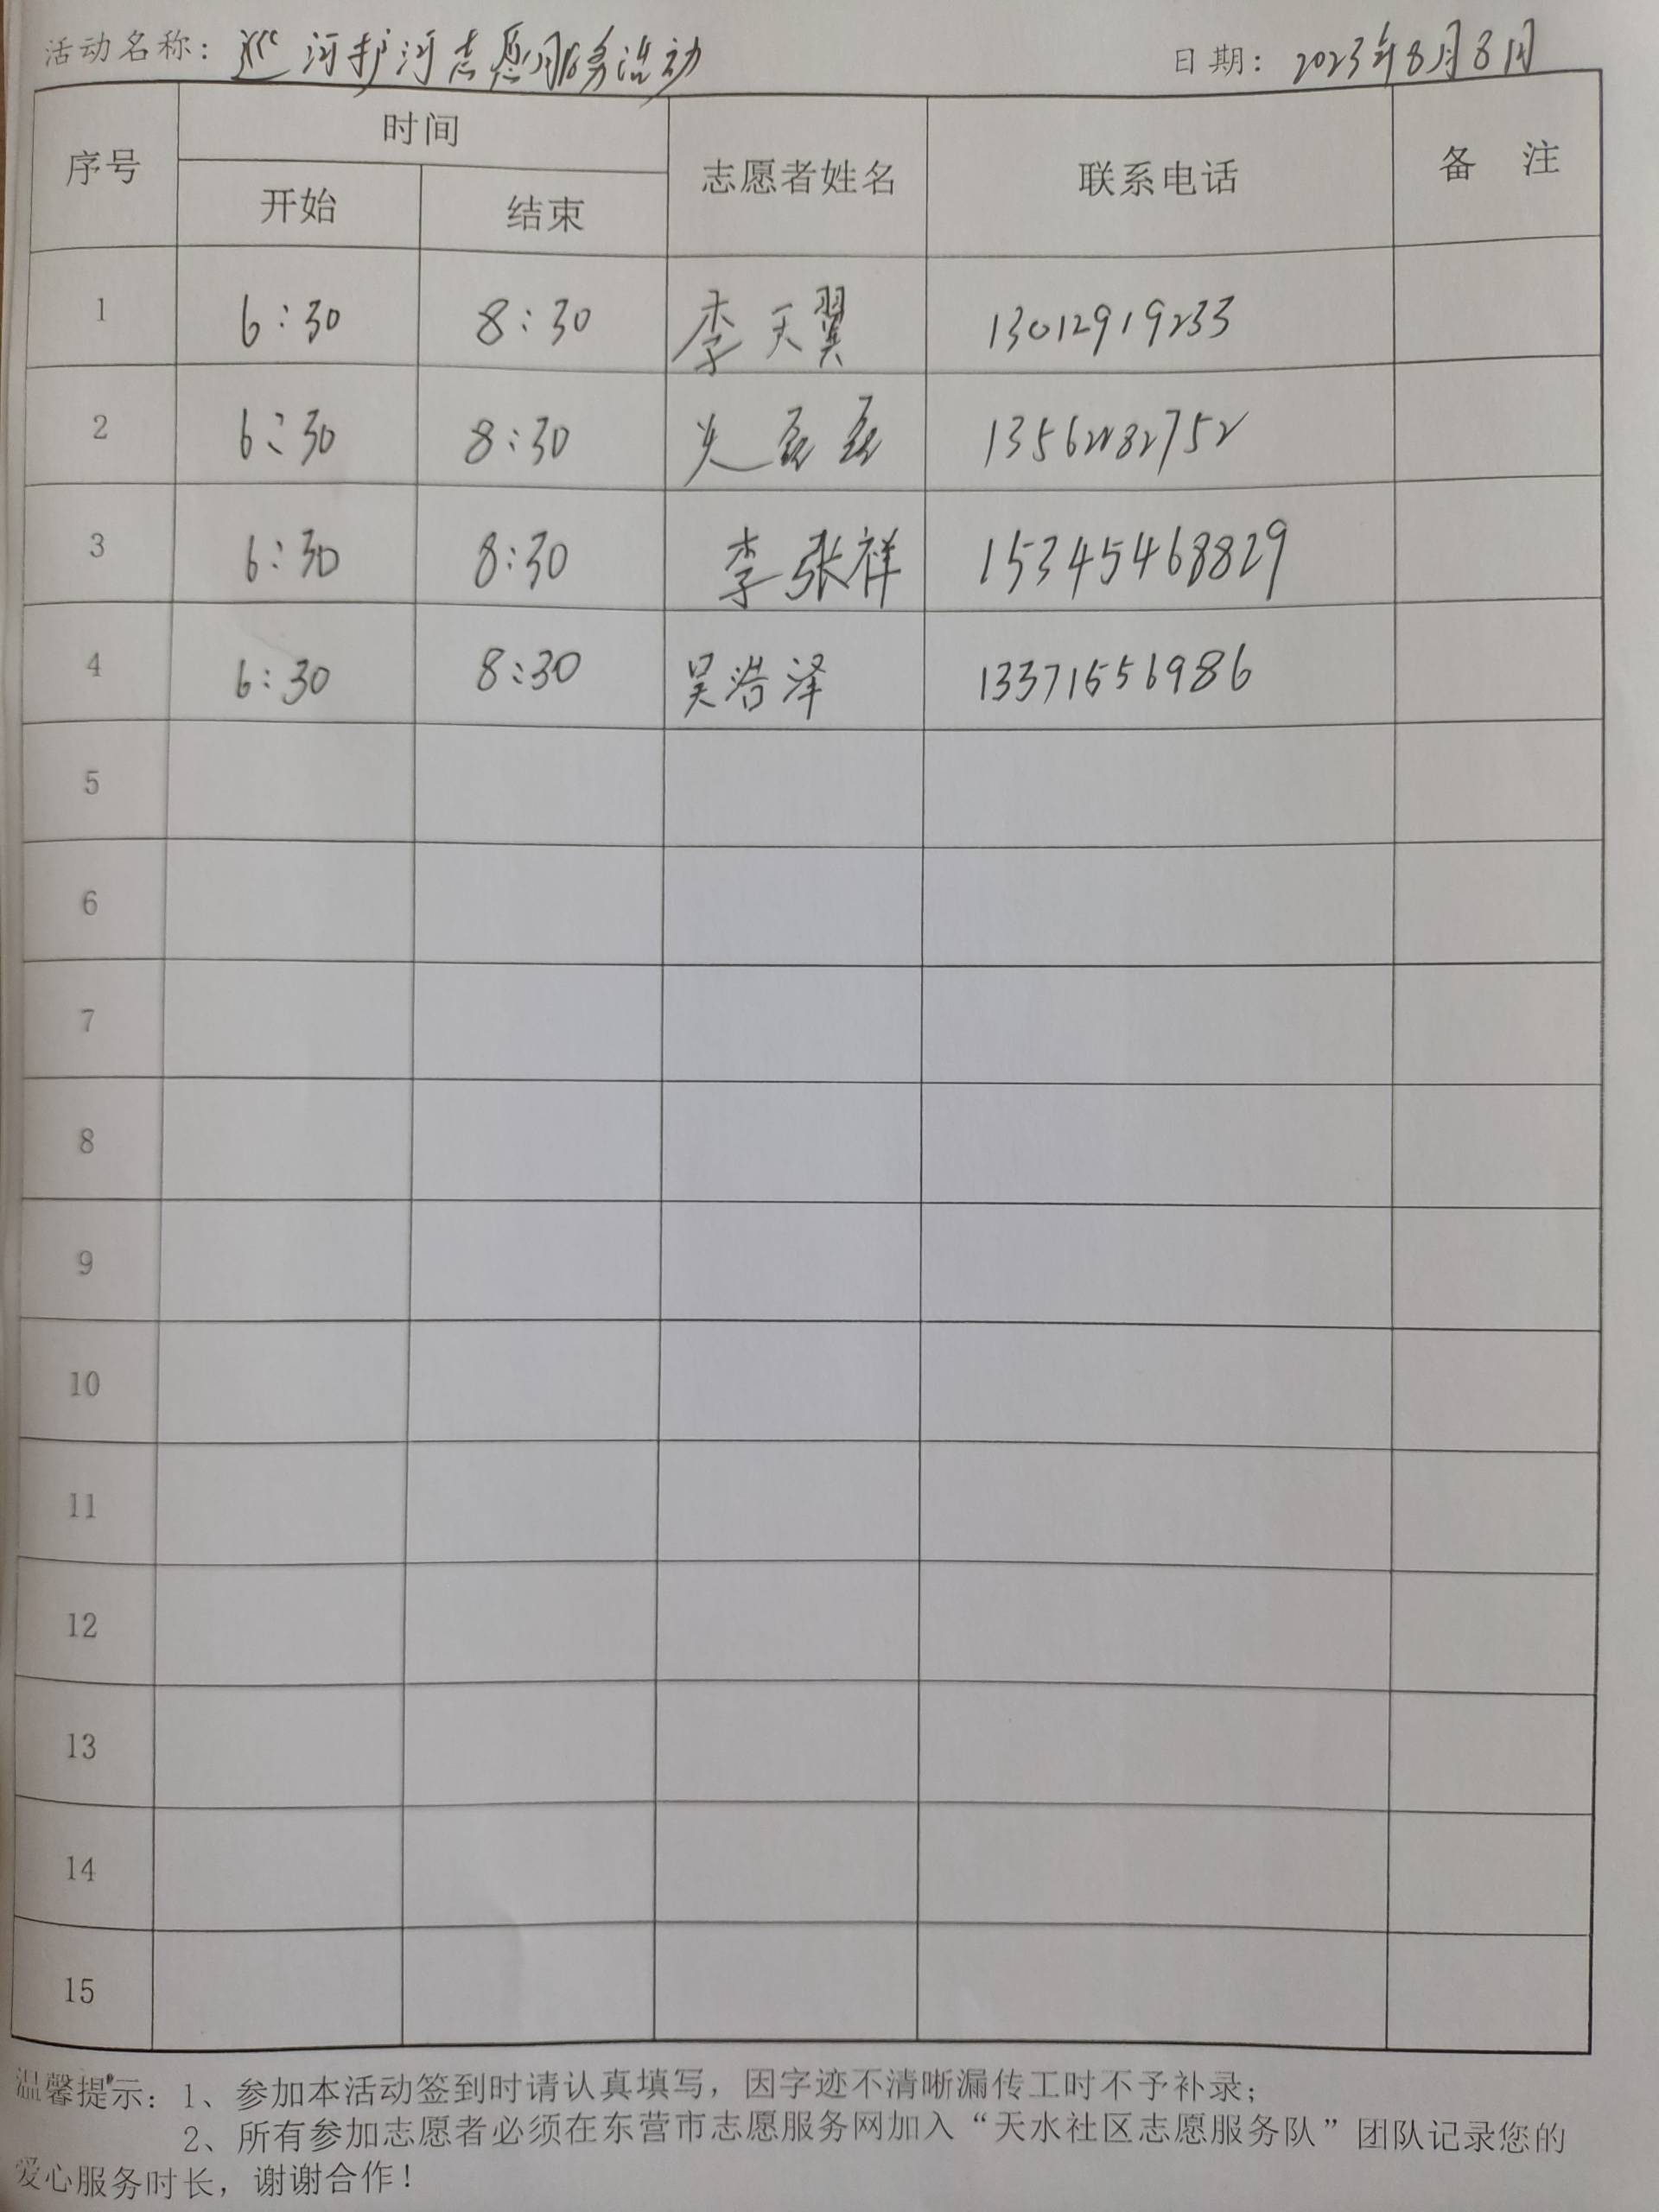 活动名称：巡河护河志愿服务活动 日期：2023年8月8日
序号 时间 志愿者姓名 联系电话 备 注
开始 结束
1 6:30 8:30 李天翼 13012919233
2 6:30 8:30
3 6:30 8:30 李张祥 15345468829
4 6:30 8:30 吴浩泽 13371556986
5
6
7
8
9
10
11
12
13
14
15
温馨提示：1、参加本活动签到时请认真填写，因字迹不清晰漏传工时不予补录；
2、所有参加志愿者必须在东营市志愿服务网加入“天水社区志愿服务队”团队记录您的
爱心服务时长，谢谢合作！